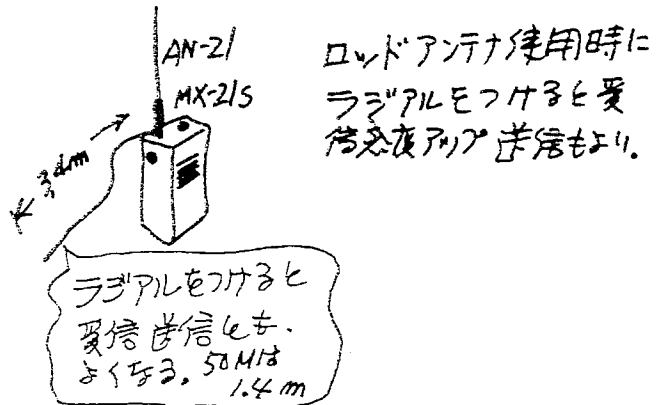 AN-21
MX-21S
3.4m
ロッドアンテナ使用時に
ラジアルをつけると受
信感度アップ送信もよい。
ラジアルをつけると
受信送信とも.
よくなる。50Mは
1.4m